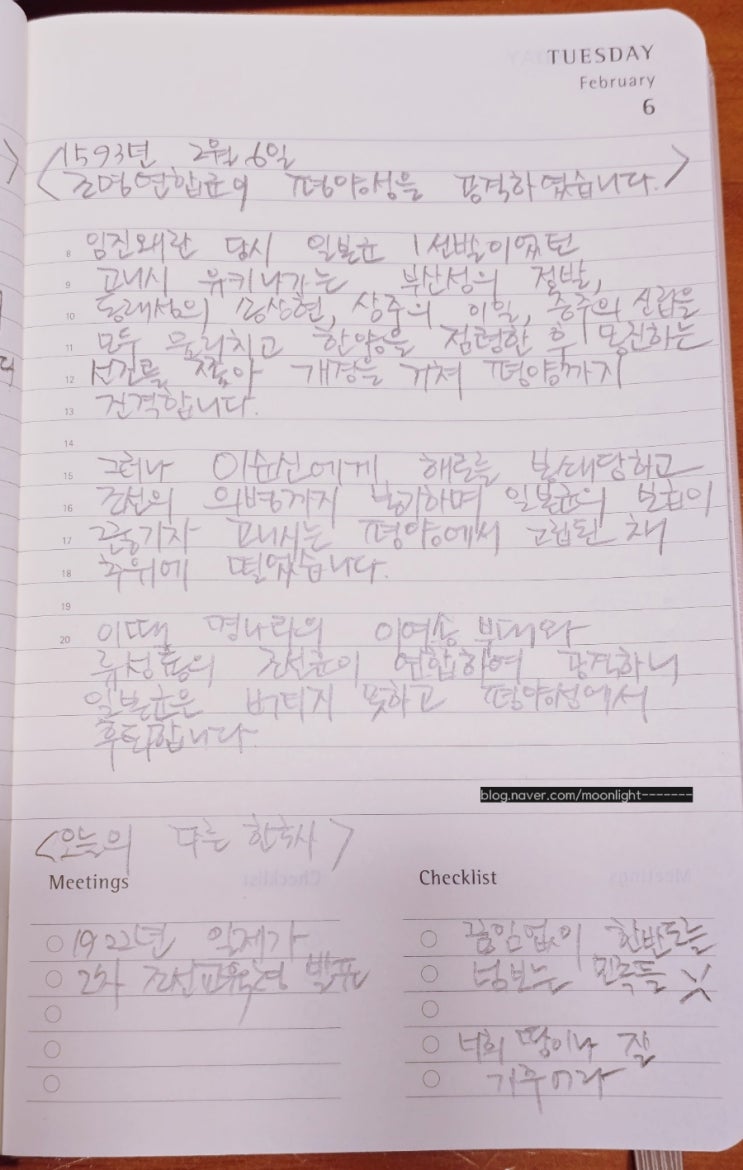 TUESDAY
February
6
<1593년 2월 6일
조명연합군이 평양성을 공격하였습니다.>
8 임진왜란 당시 일본군 1선발이었던
9 고니시 유키나가는 부산성의 정발,
10 동래성의 송상현, 상주의 이일, 충주의 신립을
11 모두 물리치고 한양을 점령한 후 몽진하는
12 선조를 쫓아 개경을 거쳐 평양까지
13 진격합니다.
14
15 그러나 이순신에게 해로를 봉쇄당하고
16 조선의 의병까지 봉기하며 일본군의 보급이
17 끊기자 고니시는 평양에서 고립된 채
18 추위에 떨었습니다.
19
20 이때 명나라의 이여송 부대와
류성룡의 조선군이 연합하여 공격하니
일본군은 버티지 못하고 평양성에서
후퇴합니다.
blog.naver.com/moonlight-------
<오늘의 다른 한국사>
Meetings
1922년 일제가
2차 조선교육령 발표
Checklist
끊임없이 한반도를
넘보는 민족들
너희 땅이나 잘
가꾸어라